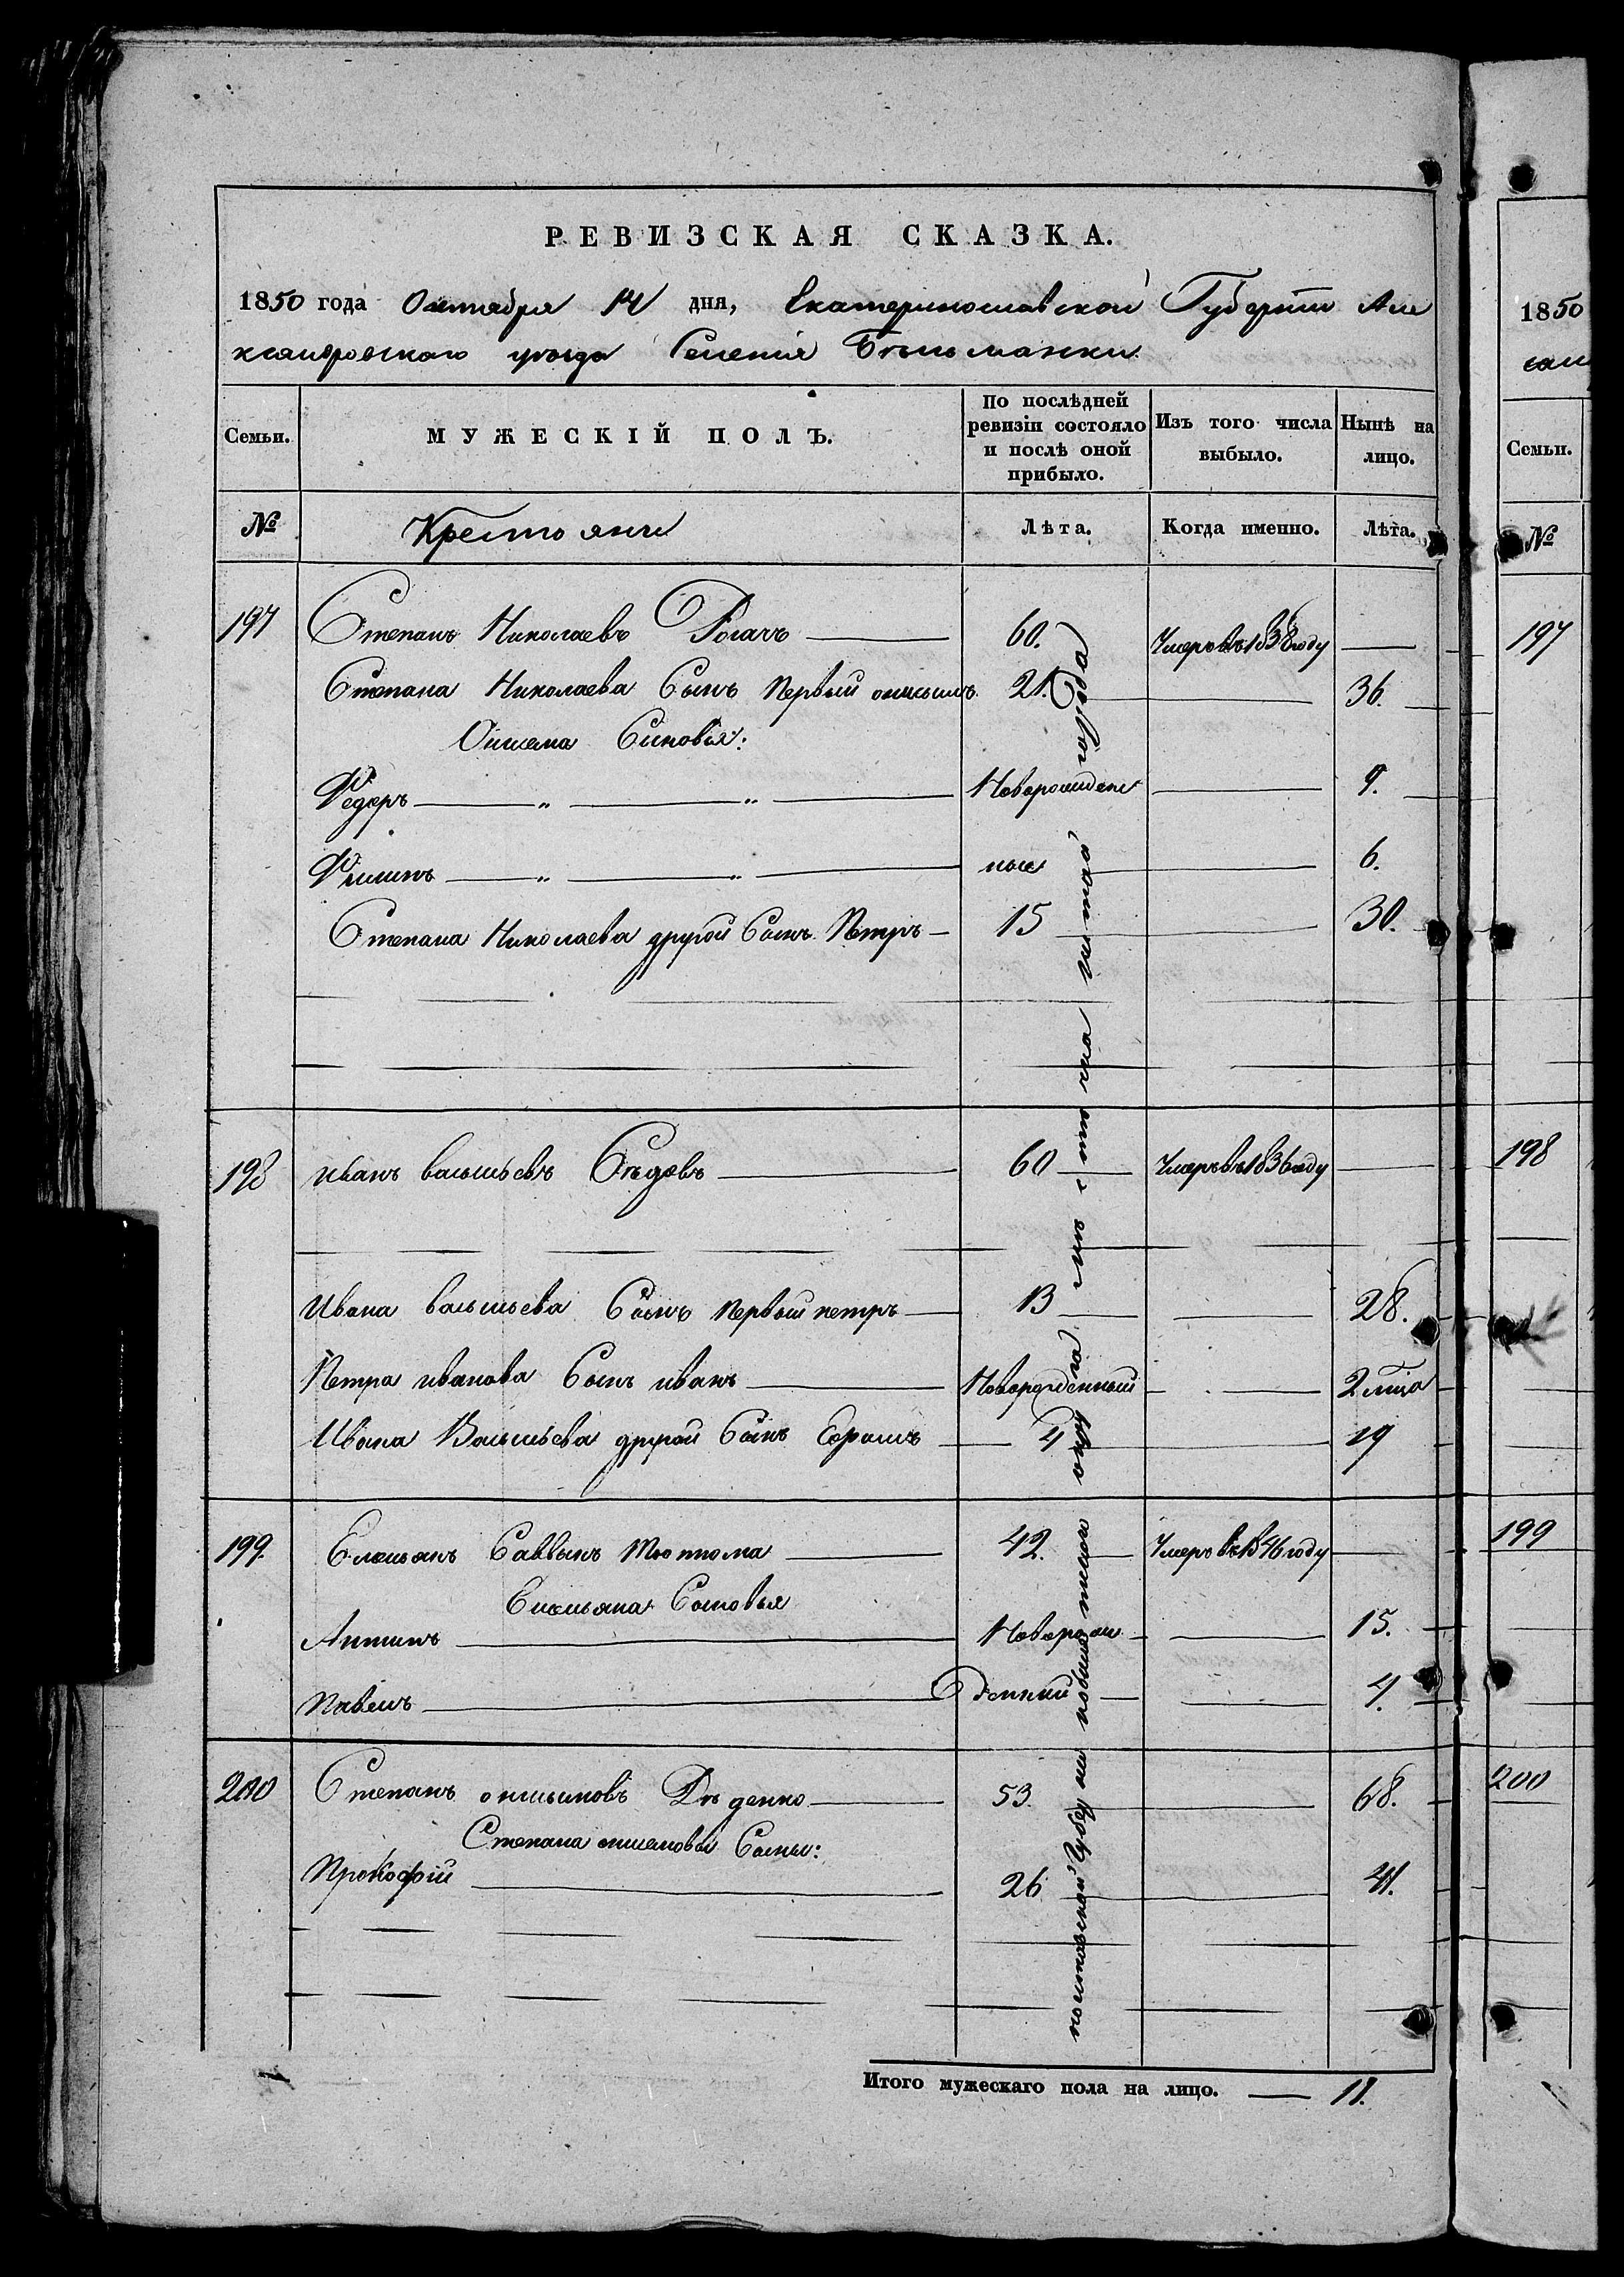 РЕВИЗСКАЯ СКАЗКА.
1850 года Октября 14 дня, Екатеринославской Губернiи Але
ксандровскаго уѣзда Селенiя Бѣльманки
Семьи.
МУЖЕСКІЙ ПОЛЪ.
По послѣдней ревизіи состояло и послѣ оной прибыло.
Изъ того числа выбыло.
Нынѣ на лицо.
№ Крестьяни Лѣта. Когда именно. Лѣта.
197 Степанъ Николаевъ Рогачъ 60. Умеръ въ 1838 году
Степана Николаева Сынъ Первый 21. 36.
Сыновья:
Федоръ Новорожденн 9.
Филипъ ные 6.
Степана Николаева другой Сынъ Петръ 15 30.
198 Иванъ васильевъ Сѣдовъ 60 Умеръ въ 1836 году
Ивана васильева Сынъ первый петръ 13 28.
Петра иванова Сынъ иванъ Новорожденный 2
Ивана Васильева другой Сынъ 4 19
199. Емельянъ Саввинъ 42. Умеръ въ 1846 году
Емельяна Сыновья
Антипъ Новорож 15.
Павелъ денный 4.
200 Степанъ Дѣденко 53. 68.
Степана Сыны:
Прокофій 26 41.
Итого мужескаго пола на лицо. 11.
1850
Семьи.
№
197
198
199
200